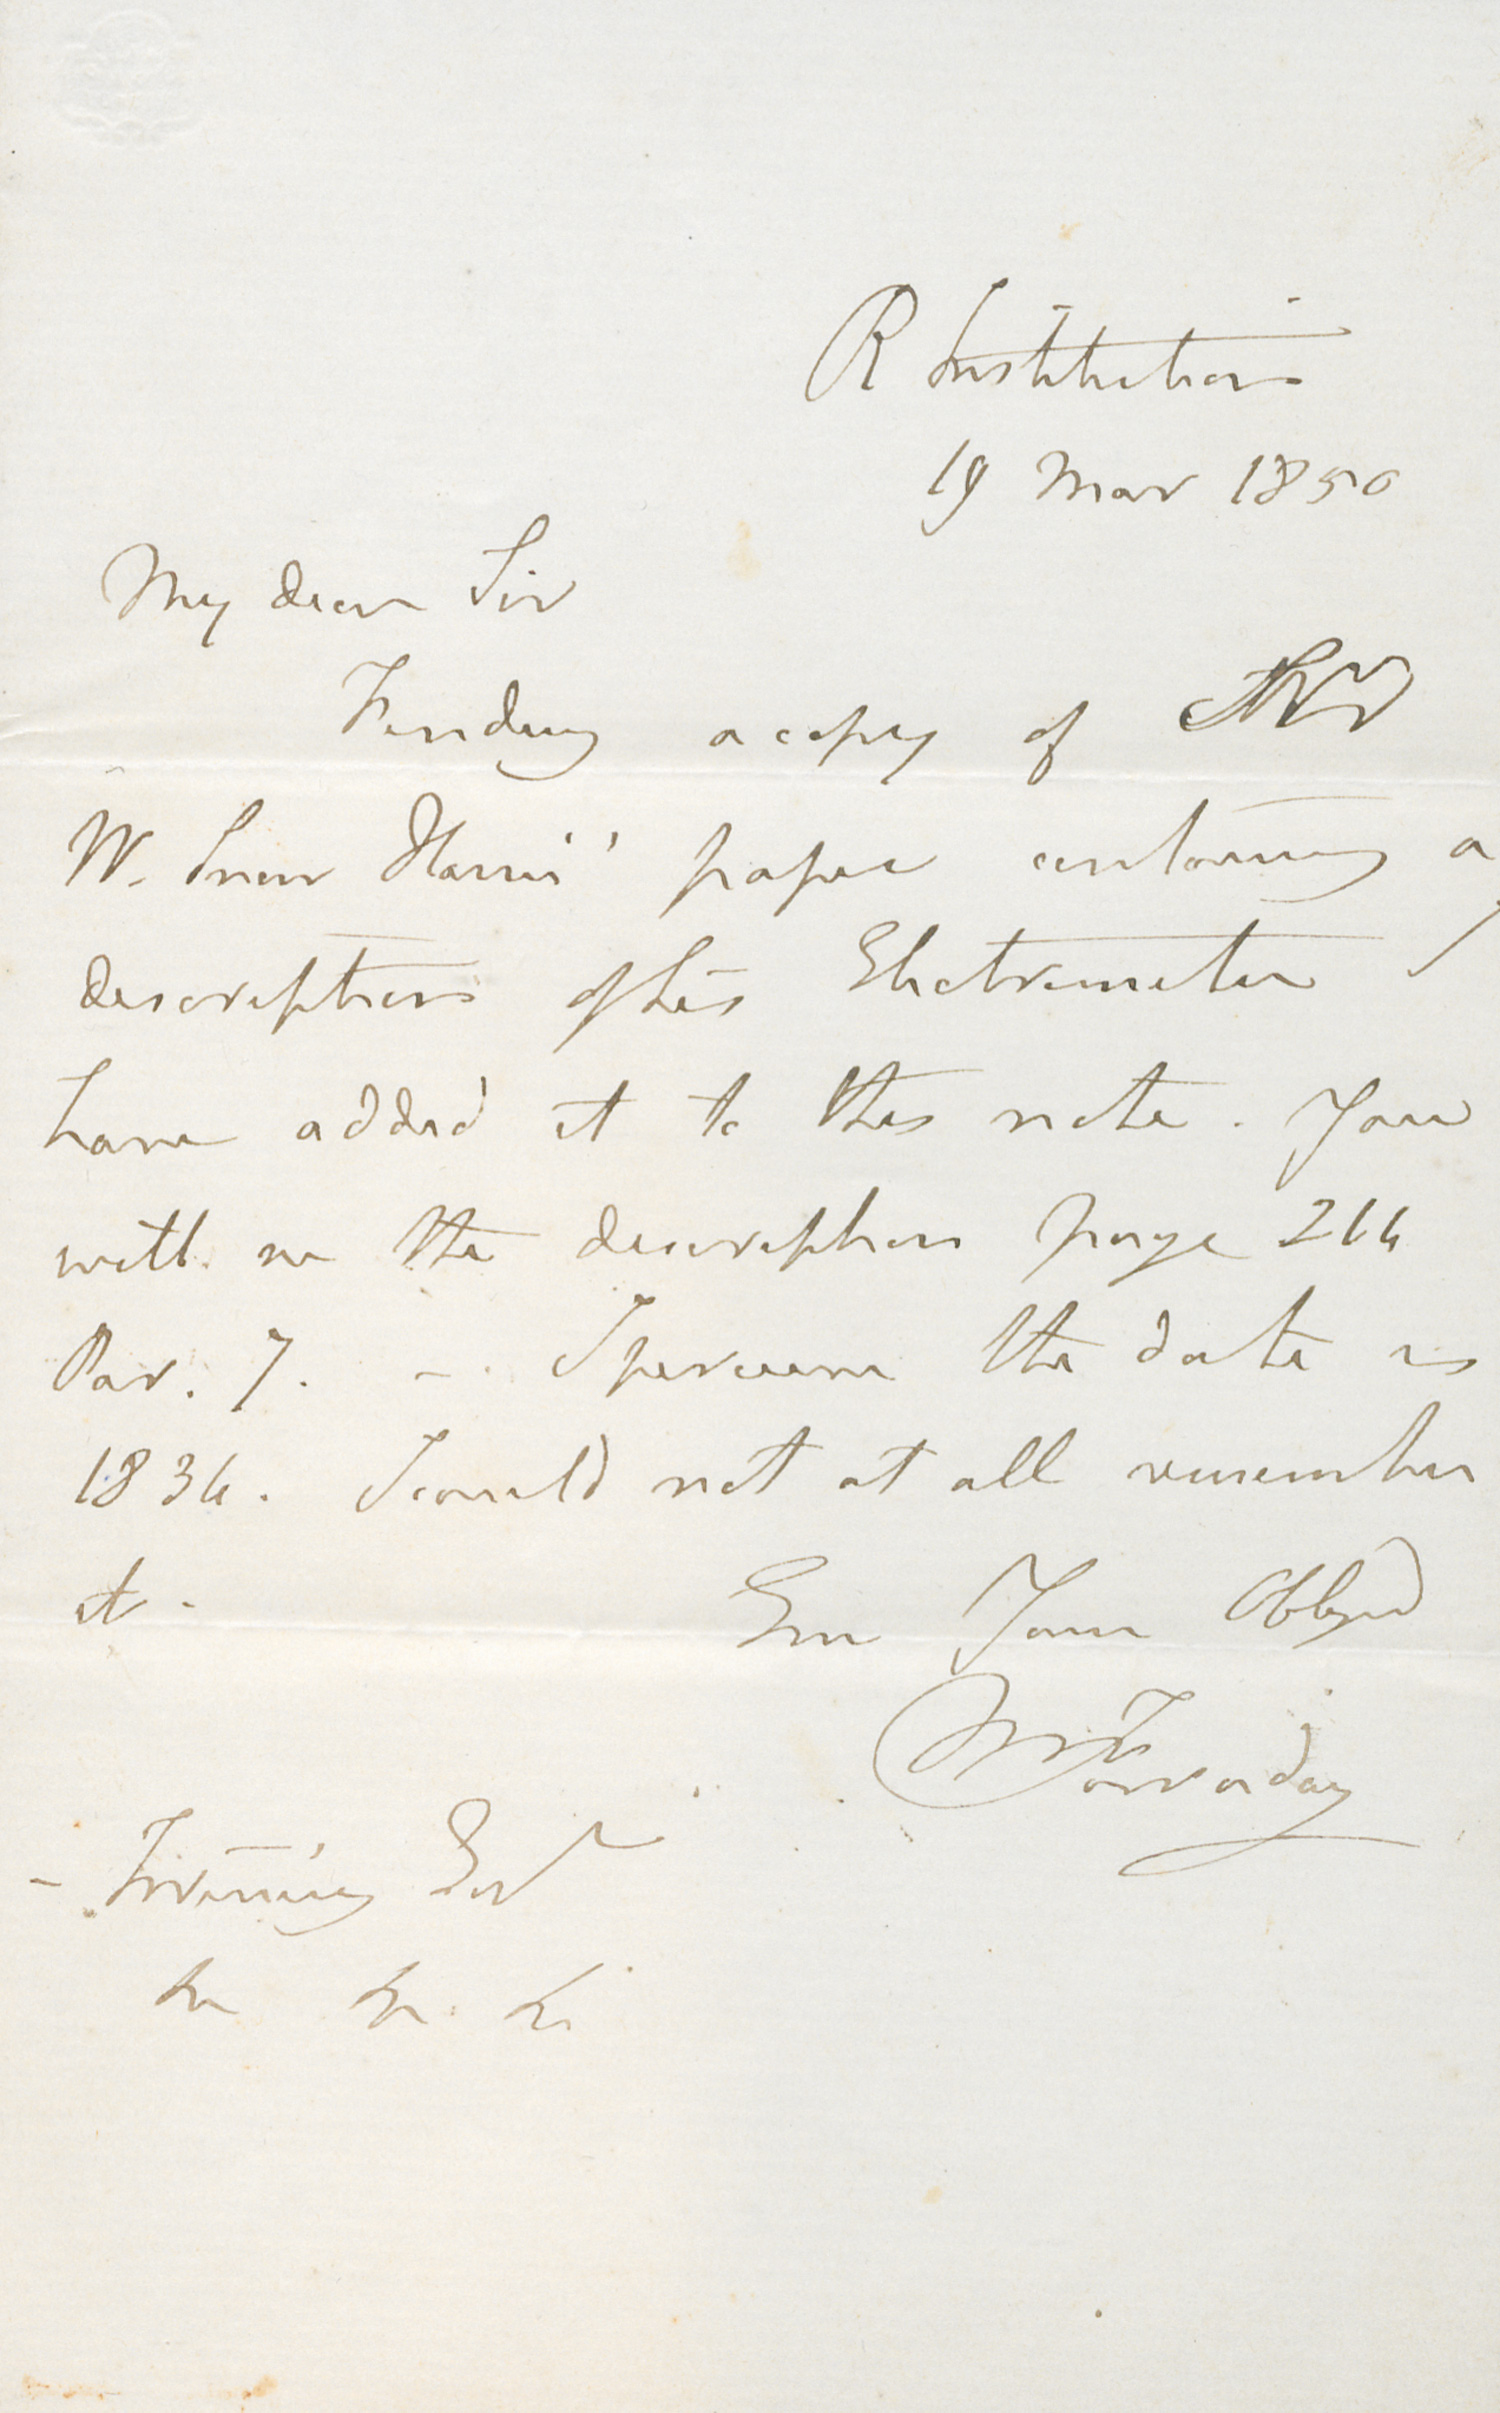 R Institution
19 Mar 1850
My dear Sir
Finding a copy of Sir
W. Snow Harris' paper containing a
description of his Electrometer I
have added it to this note. You
will see the description page 214
Par. 7. - I perceive the date is
1834. I could not at all remember
it.
Ever Yours Obliged
M Faraday
- Twining Esq
&c &c &c